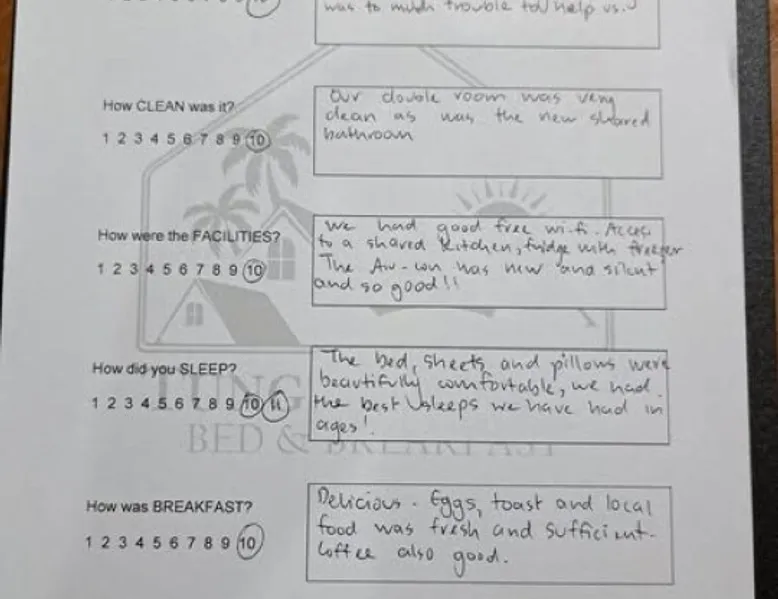 was to much trouble to help us.
How CLEAN was it?
1 2 3 4 5 6 7 8 9 10
Our double room was very
clean as was the new shared
bathroom
How were the FACILITIES?
1 2 3 4 5 6 7 8 9 10
We had good free wi-fi. Access
to a shared kitchen, fridge with freezer
The Air-con was new and silent
and so good!!
How did you SLEEP?
1 2 3 4 5 6 7 8 9 10 11
The bed, sheets and pillows were
beautifully comfortable, we had
the best sleeps we have had in
ages!
BED & BREAKFAST
How was BREAKFAST?
1 2 3 4 5 6 7 8 9 10
Delicious. Eggs, toast and local
food was fresh and sufficient.
Coffee also good.